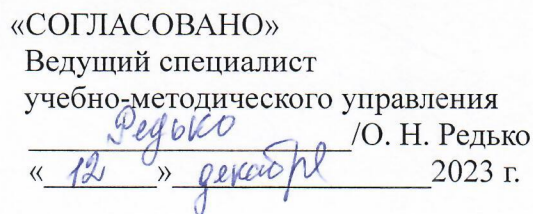 «СОГЛАСОВАНО»
Ведущий специалист
учебно-методического управления
Редько/О. Н. Редько
«12» декабря 2023 г.